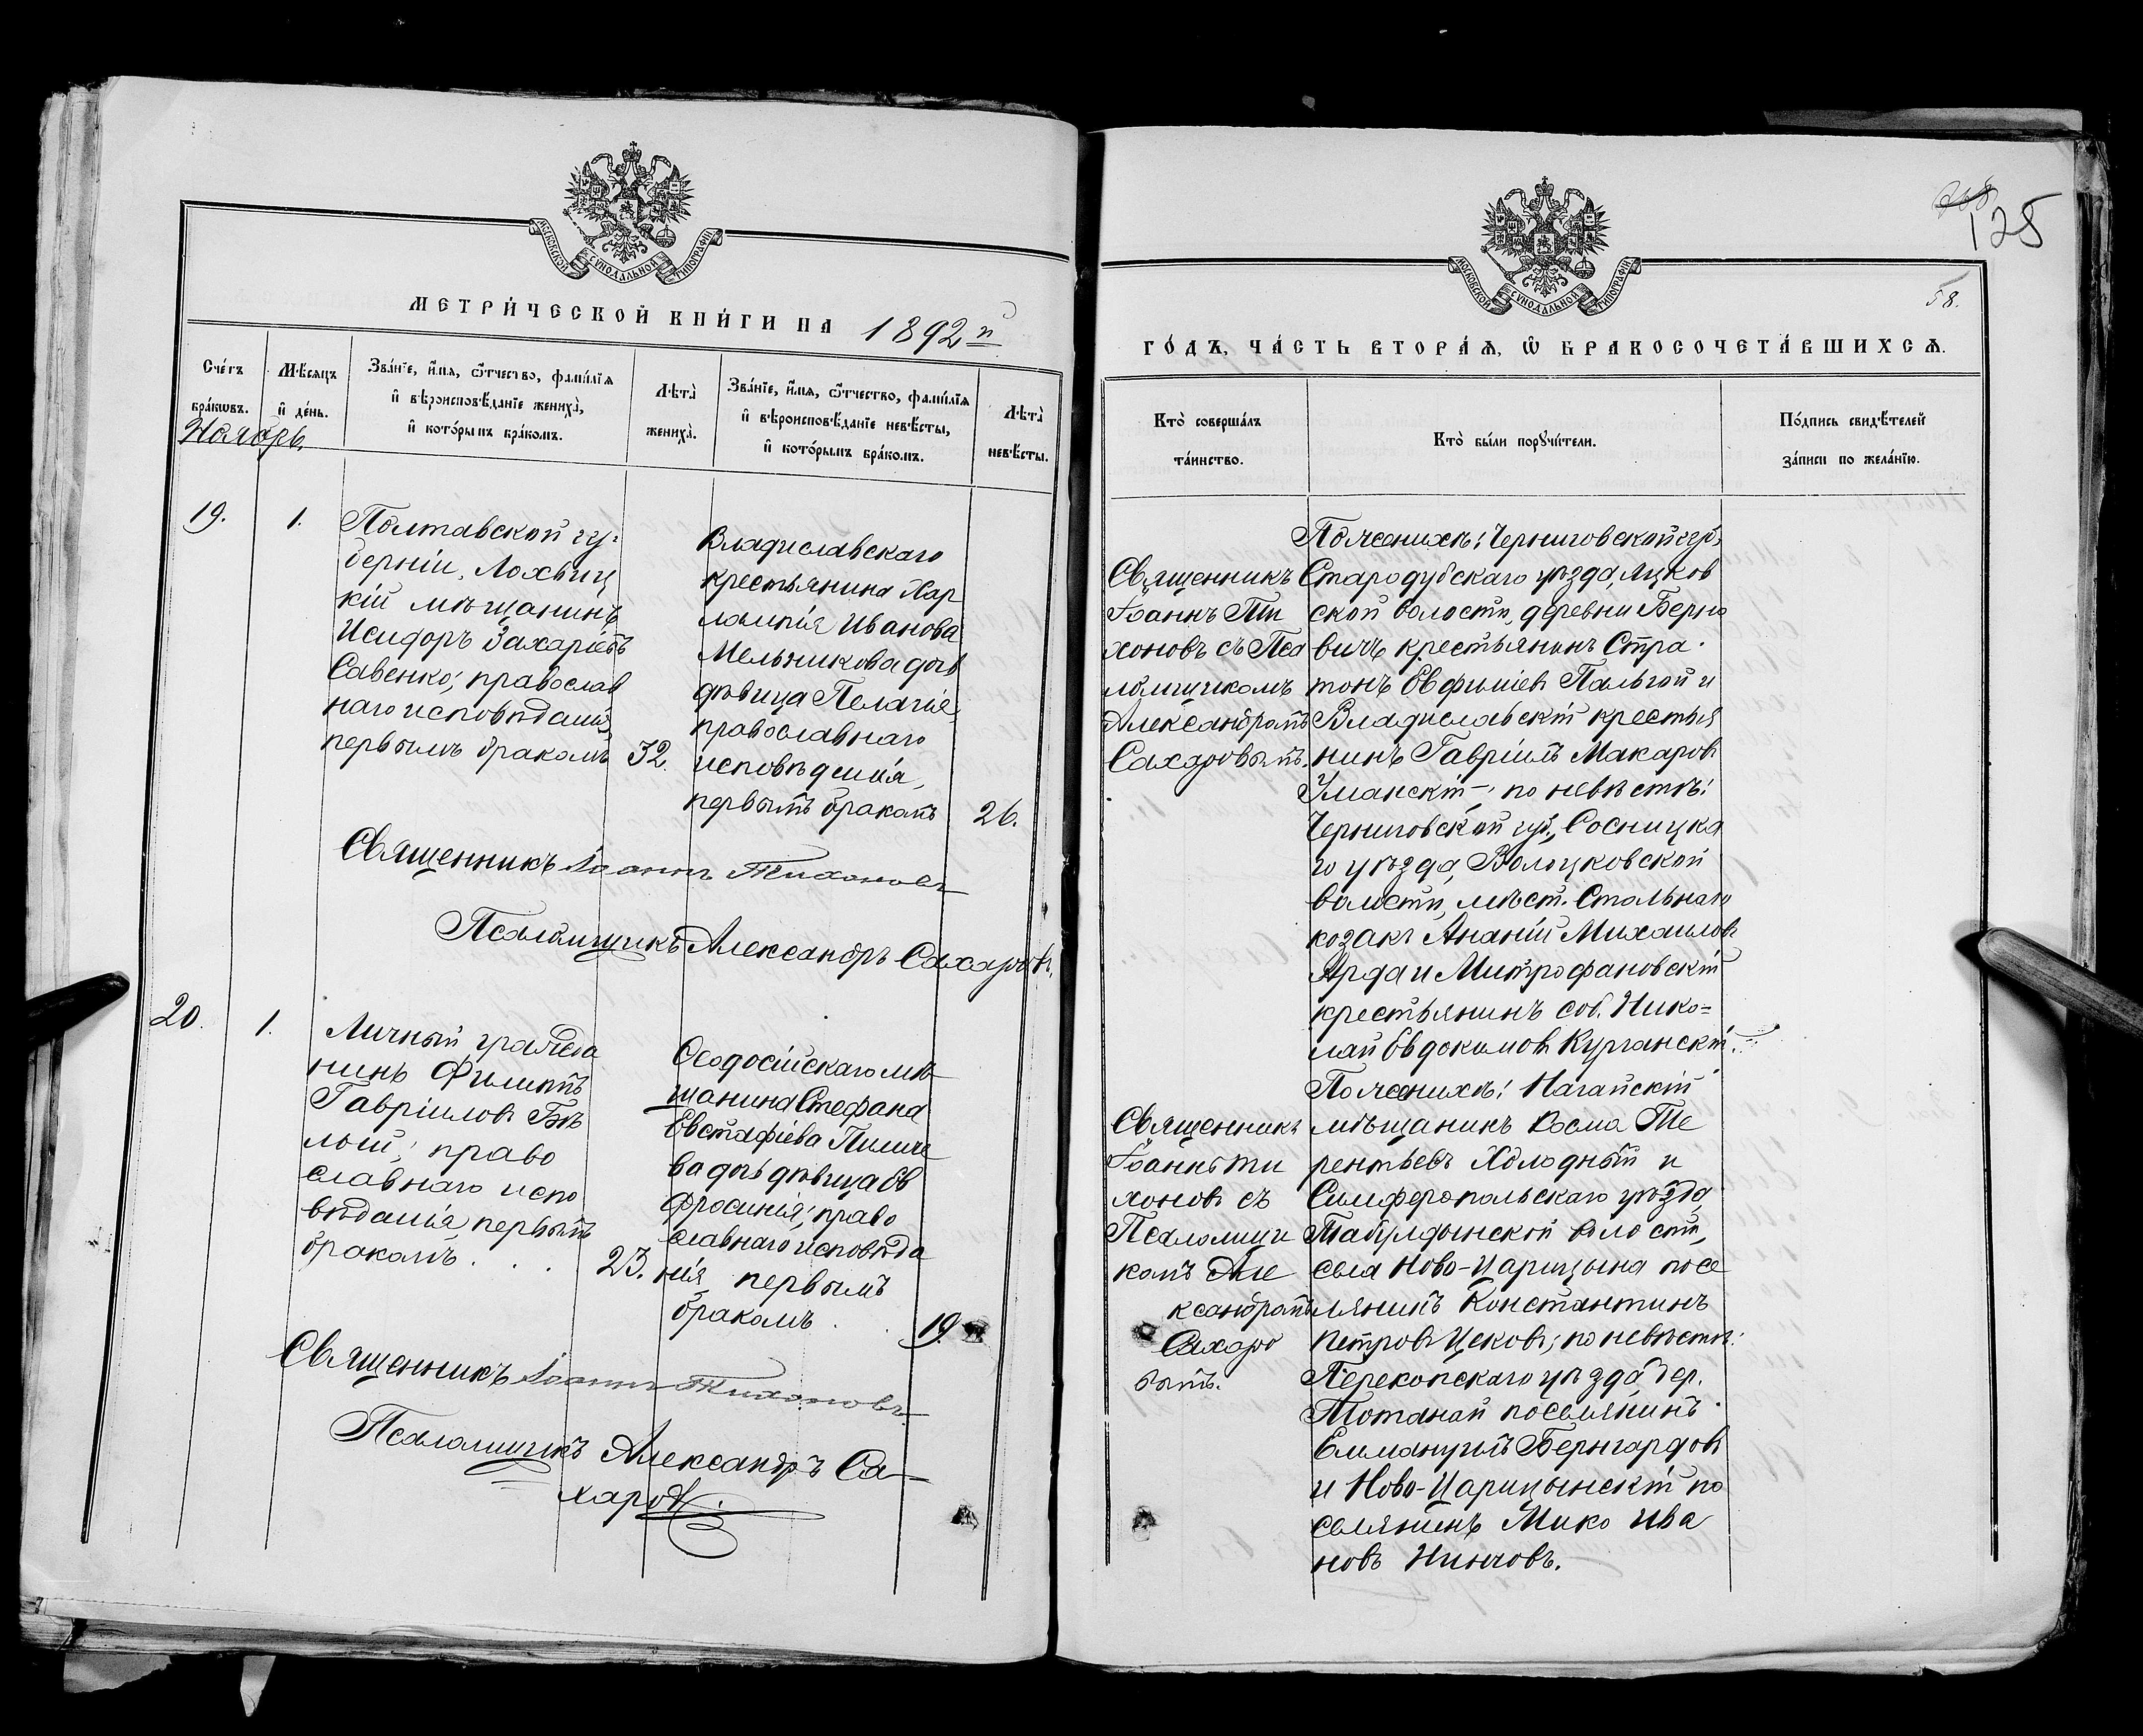 МОСКОВСКОЙ СѴНОДАЛЬНОЙ ТИПОГРАФІИ
МЕТРИ́ЧЕСКОЙ КНИ́ГИ НА 1892 й
Сче́тъ бра́кωвъ.
Мѣ́сяцъ и҆ де́нь.
Зва́нїе, и҆́мя, ѻ҆́тчество, фами́лїя
и҆ вѣроисповѣ́данїе жениха̀,
и҆ кото́рымъ бра́комъ.
Лѣта̀ жениха̀.
Зва́нїе, и҆́мя, ѻ҆́тчество, фами́лїя
и҆ вѣроисповѣ́данїе невѣ́сты,
и҆ кото́рымъ бра́комъ.
Лѣта̀ невѣ́сты.
Ноябрь
19.
1.
Полтавской гу-
берніи, Лохвиц
кій мѣщанинъ
Исидоръ Захаріевъ
Савенко; православ
наго исповѣданія
первымъ бракомъ
32.
Владиславскаго
крестьянина Хар
лампія Иванова
Мельникова дочь
дѣвица Пелагія
православнаго
исповѣданія,
первымъ бракомъ
26.
Священникъ Іоаннъ Тихоновъ
Псаломщикъ Александръ Сахаровъ.
20.
1.
Личный гражда
нинъ Филиппъ
Гавріиловъ Бѣ
лый; право
славнаго испо
вѣданія, первымъ
бракомъ . . .
23.
Ѳеодосійскаго мѣ
щанина Стефана
Евстафіева
ва дочь дѣвица Ев
фросинія; право
славнаго исповѣда
нія, первымъ
бракомъ . .
19.
Священникъ Іоаннъ Тихоновъ
Псаломщикъ Александръ Са-
харовъ.
125
58.
МОСКОВСКОЙ СѴНОДАЛЬНОЙ ТИПОГРАФІИ
ГО́ДЪ, ЧА́СТЬ ВТОРА́Я, Ѽ БРАКОСОЧЕТА́ВШИХСЯ.
Кто̀ соверша́лъ
та́инство.
Кто̀ бы́ли порꙋчи́тели.
По́дпись свидѣ́телей
за́писи по жела́нїю.
Священникъ
Іоаннъ Ти
хоновъ съ Пса
ломщикомъ
Александромъ
Сахаровымъ.
По женихѣ: Черниговской губ,
Стародубскаго уѣзда, Яцков
ской волости, деревни Берно
вичъ крестьянинъ Стра
тонъ Евфиміевъ Пальгой и
Владиславскій крестья
нинъ Гавріилъ Макаровъ
Уманскій; по невѣстѣ:
Черниговской губ., Сосницка
го уѣзда, Волоцковской
волости, мѣст. Стольнаго
козакъ Ананій Михаиловъ
Ярда и Митрофановскій
крестьянинъ соб. Нико=
лай Евдокимовъ Курганскій.
Священникъ
Іоаннъ Ти
хоновъ съ
Псаломщи
комъ Але
ксандромъ
Сахаро
вымъ.
По женихѣ: Ногайскій
мѣщанинъ Косма Те
рентьевъ Холодный и
Симферопольскаго уѣзда,
Табулдынской волости,
села Ново-Царицына посе
лянинъ Константинъ
Петровъ Цековъ; по невѣстѣ:
Перекопскаго уѣзда, дер.
Тотанай поселянинъ
Еммануилъ Бернгардовъ
и Ново-Царицынскій по
селянинъ Мико Ива
новъ Нинчовъ.